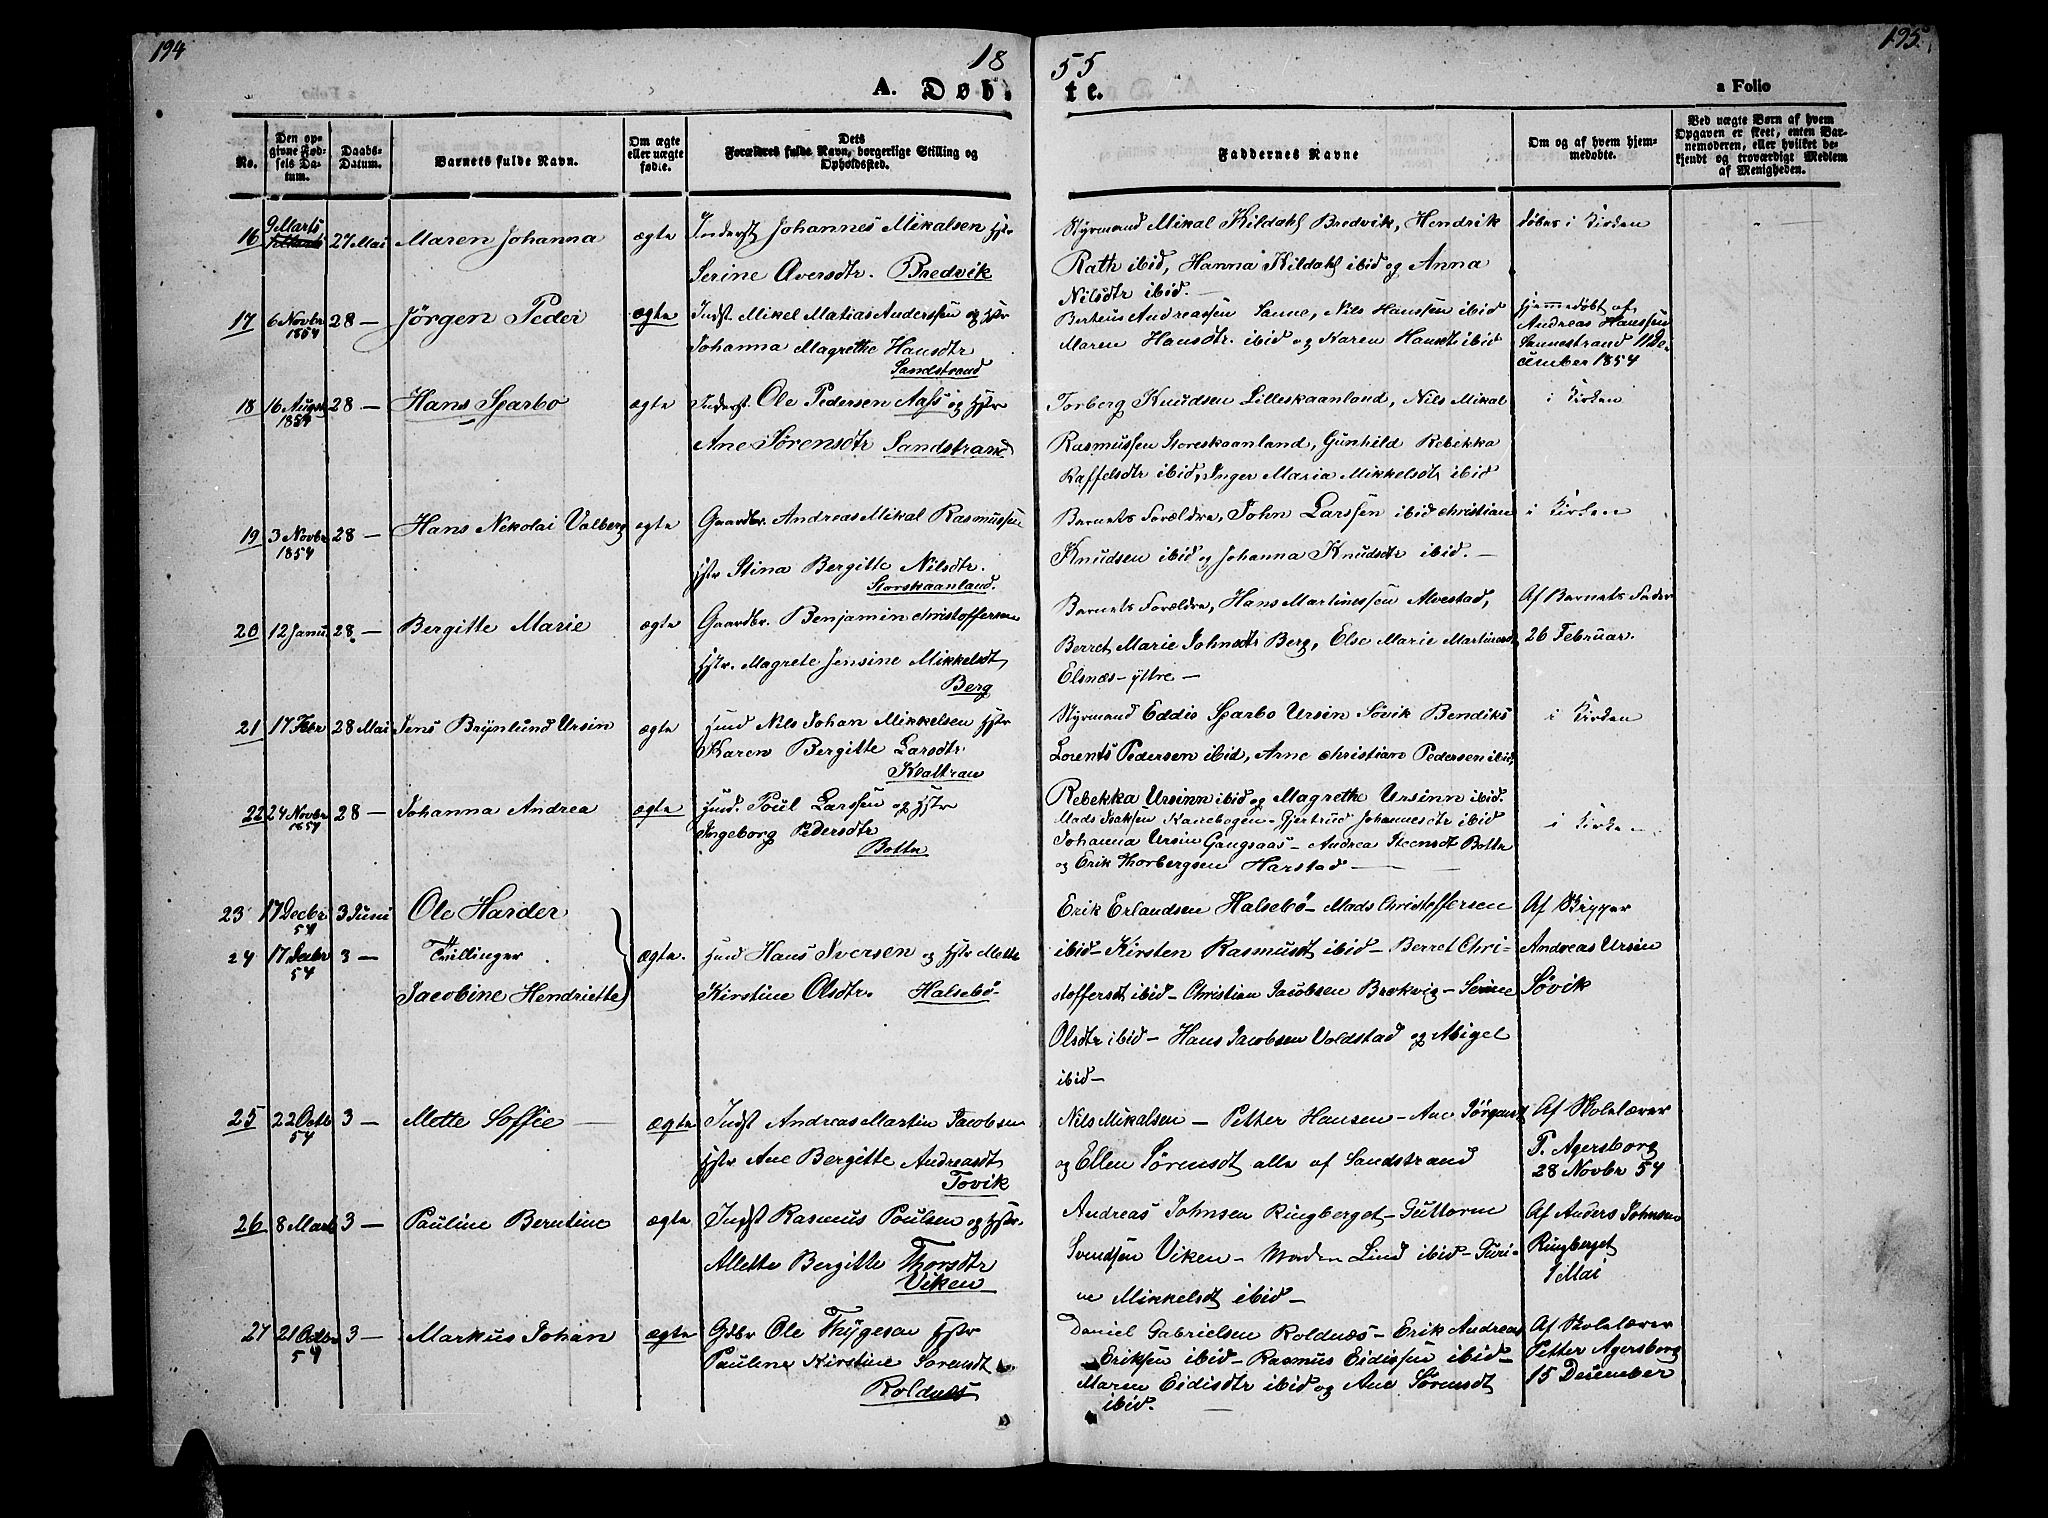 194
18
55
195
A. Døb-
te.
a Folio
No.
Den op-
givne Fød-
sels Da-
tum.
Daabs-
Datum.
Barnets fulde Navn.
Om ægte
eller uægte
fødte.
Dets
Forældres fulde Navn, borgerlige Stilling og
Opholdssted.
Faddernes Navne
Om og af hvem hjem-
medøbte.
Ved uægte Børn af hvem
Opgaven er skeet, enten Bar-
nemoderen, eller hvilket be-
kjendt og troværdigt Medlem
af Menigheden.
16 9 Marts 27 Mai Maren Johanna ægte Inderst Johannes Mikalsen Hstr
Serine Aversdtr. Bredvik
Styrmand Mikal Kildahl Bredvik, Hendrik
Rath ibid, Hanna Kildahl ibid og Anna
Nilsdtr ibid.
døbes i Kirken
17 6 Novbr 1854 28 — Jörgen Peder ægte Indst. Mikel Matias Anderssen og Hstr
Johanna Magrethe Hansdtr
Sandstrand
Berteus Andreassen Sanne, Nils Hanssen ibid
Maren Hansdtr. ibid og Karen Hansdt ibid
Hjemmedøbt af
Andreas Hanssen
Sannestrand 11 De-
cember 1854
18 16 August 1854 28 — Hans Sparbo ægte Inderst. Ole Pedersen Aass og Hstr
Ane Sørensdtr Sandstrand
Torberg Knudsen Lilleskaanland, Nils Mikal
Rasmussen Storeskaanland, Gunhild Rebekka
Raffelsdtr ibid, Inger Maria Mikkelsdt ibid
i Kirken
19 3 Novbr 1854 28 — Hans Nekolai Valberg ægte Gaardbr. Andreas Mikal Rasmussen
Hstr Stina Bergitte Nilsdtr.
Storskaanland.
Barnets Forældre, John Larssen ibid christian
Knudsen ibid og Johanna Knudsdtr ibid. —
i Kirken
20 12 Janu. 28 — Bergitte Marie ægte Gaardbr. Benjamin christoffersen
Hstr. Magrete Jensine Mikkelsdt
Berg
Barnets Forældre, Hans Martinessen Alvestad,
Berret Marie Johnsdtr Berg, Else Marie Martinusdt
Elsnæs-yttre —
Af Barnets Fader
26 Februar.
21 17 Febr 28 Mai Jens Brynlund Ursin ægte Husmd Nils Johan Mikkelsen Hstr
Karen Bergitte Larsdtr
Styrmand Eddis Sparbo Ursin Søvik Bendiks
Lorents Pedersen ibid, Arne christian Pedersen ibid,
Rebekka Ursinn ibid og Magrethe Ursinn ibid.
i Kirken
22 24 Novbr 1854 28 — Johanna Andrea ægte Husmd. Poul Larssen og Hstr
Ingeborg Pedersdtr
Botta
Mads Isaksen Kanebogen — Gjertrud Johannesdtr ibid
Johanna Ursin Gangsaas — Andrea Steensdt Botta
og Erik Thorbergsen Harstad —
i Kirken
23 17 Decbr 54 3 Juni Ole Harder
24 17 Decbr 54 3 — Tvillinger
Jacobine Hendriette
ægte. Husmd Hans Iversen og Hstr Mette
Kirstine Olsdtr. Halsebö
Erik Erlandsen Halsebö — Mads Christoffersen
ibid — Kirsten Rasmusdt ibid — Berret Chri-
stoffersdt ibid — Christian Jacobsen Brokvig — Serine
Olsdtr ibid — Hans Jacobsen Voldstad og Abigel
ibid —
Af Skipper
Andreas Ursin
Søvik
25 22 Octb 54 3 — Mette Soffie — ægte Indst Andreas Martin Jacobsen
Hstr Ane Bergitte Andreasdt
Tovik
Nils Mikalsen — Petter Hansen — Ane Jörgensdt
og Ellen Sørensdt alle af Sandstrand
Af Skolelærer
P. Agersborg
28 Novbr 54
26 8 Marts 3 — Pauline Berntine ægte Indst Rasmus Poulsen og Hstr.
Allette Bergitte Thorsdtr
Viken
Andreas Johnsen Ringberget — Guttorm
Svendsen Viken — Lind ibid — Juri-
ne Mikkelsdt ibid —
Af Anders Johnsen
Ringberget
Mai
27 21 Octbr 54 3 — Markus Johan ægte Gdbr Ole Thygesen Hstr
Pauline Kirstine Sorensdt
Roldnæs
Daniel Gabrielsen Roldnæs — Erik Andreas
Eriksen ibid — Rasmus Eidissen ibid —
Maren Eidisdtr ibid og Ane Sørensdt
ibid.
Af Skolelærer
Petter Agersborg
15 Desember